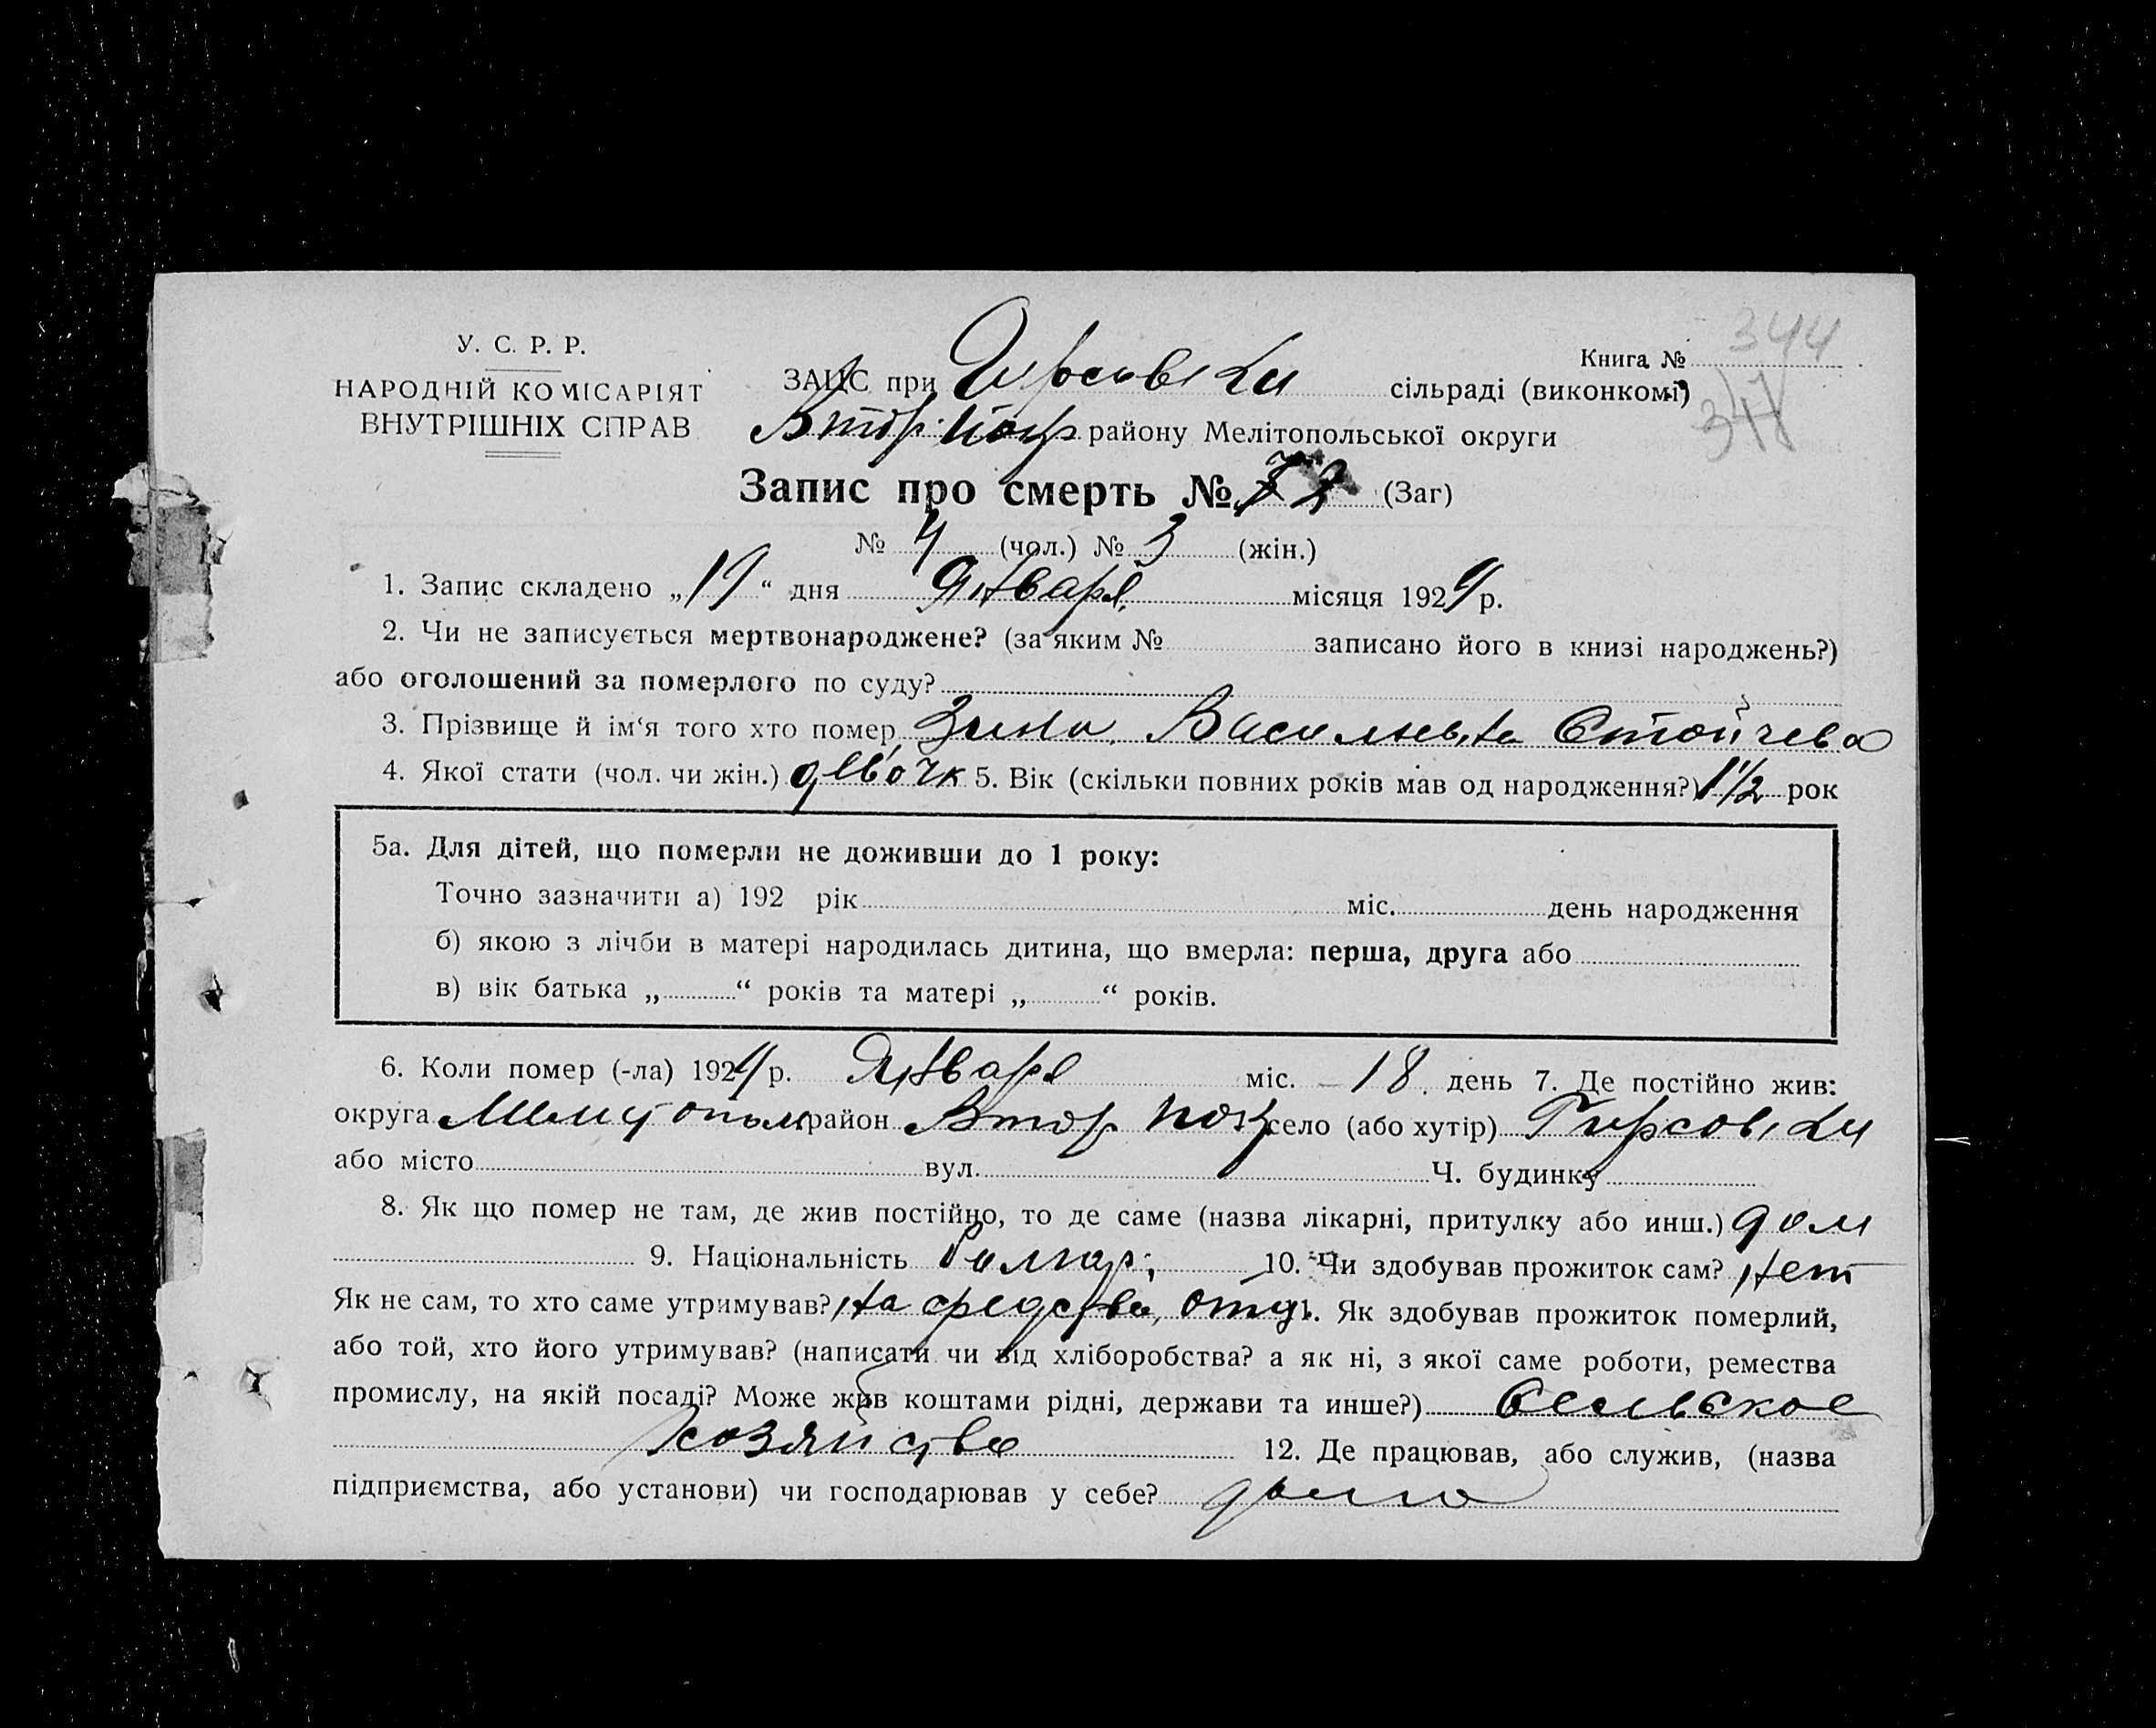 У. С. Р. Р.
НАРОДНІЙ КОМІСАРІЯТ
ВНУТРІШНІХ СПРАВ
Книга № 344
347
ЗАЦС при Гирсовки сільраді (виконкомі)
Втор. Покр району Мелітопольської округи
Запис про смерть № 7 (Заг)
№ 4 (чол.) № 3 (жін.)
1. Запис складено „19“ дня Января місяця 1929 р.
2. Чи не записується мертвонароджене? (за яким № записано його в книзі народжень?)
або оголошений за померлого по суду?
3. Прізвище й ім‘я того хто помер Зина Васильевна Стойчева
4. Якої стати (чол. чи жін.) девочк 5. Вік (скільки повних років мав од народження?) 1 1/2 рок
5а. Для дітей, що померли не доживши до 1 року:
Точно зазначити а) 192 рік міс. день народження
б) якою з лічби в матері народилась дитина, що вмерла: перша, друга або
в) вік батька „ “ років та матері „ “ років.
6. Коли помер (-ла) 1929 р. Января міс. 18 день 7. Де постійно жив:
округа Мелитополь район Втор Покр село (або хутір) Гирсовки
або місто вул. Ч. будинку
8. Як що помер не там, де жив постійно, то де саме (назва лікарні, притулку або инш.) дом
9. Національність болгар. 10. Чи здобував прожиток сам? нет
Як не сам, то хто саме утримував? на средства отц 1. Як здобував прожиток померлий,
або той, хто його утримував? (написати чи від хліборобства? а як ні, з якої саме роботи, ремества
промислу, на якій посаді? Може жив коштами рідні, держави та инше?) Сельское
хозяйство 12. Де працював, або служив, (назва
підприємства, або установи) чи господарював у себе? дома